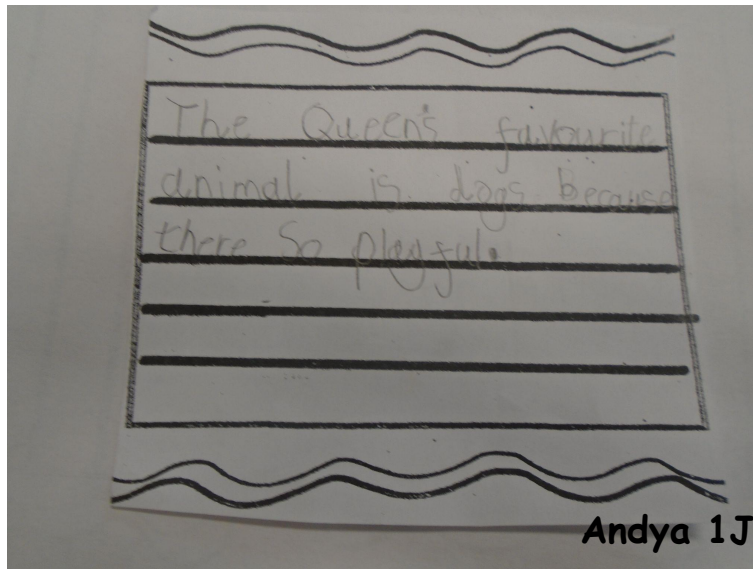 The Queen's favourite
animal is dogs because
there So playful.
Andya 1J